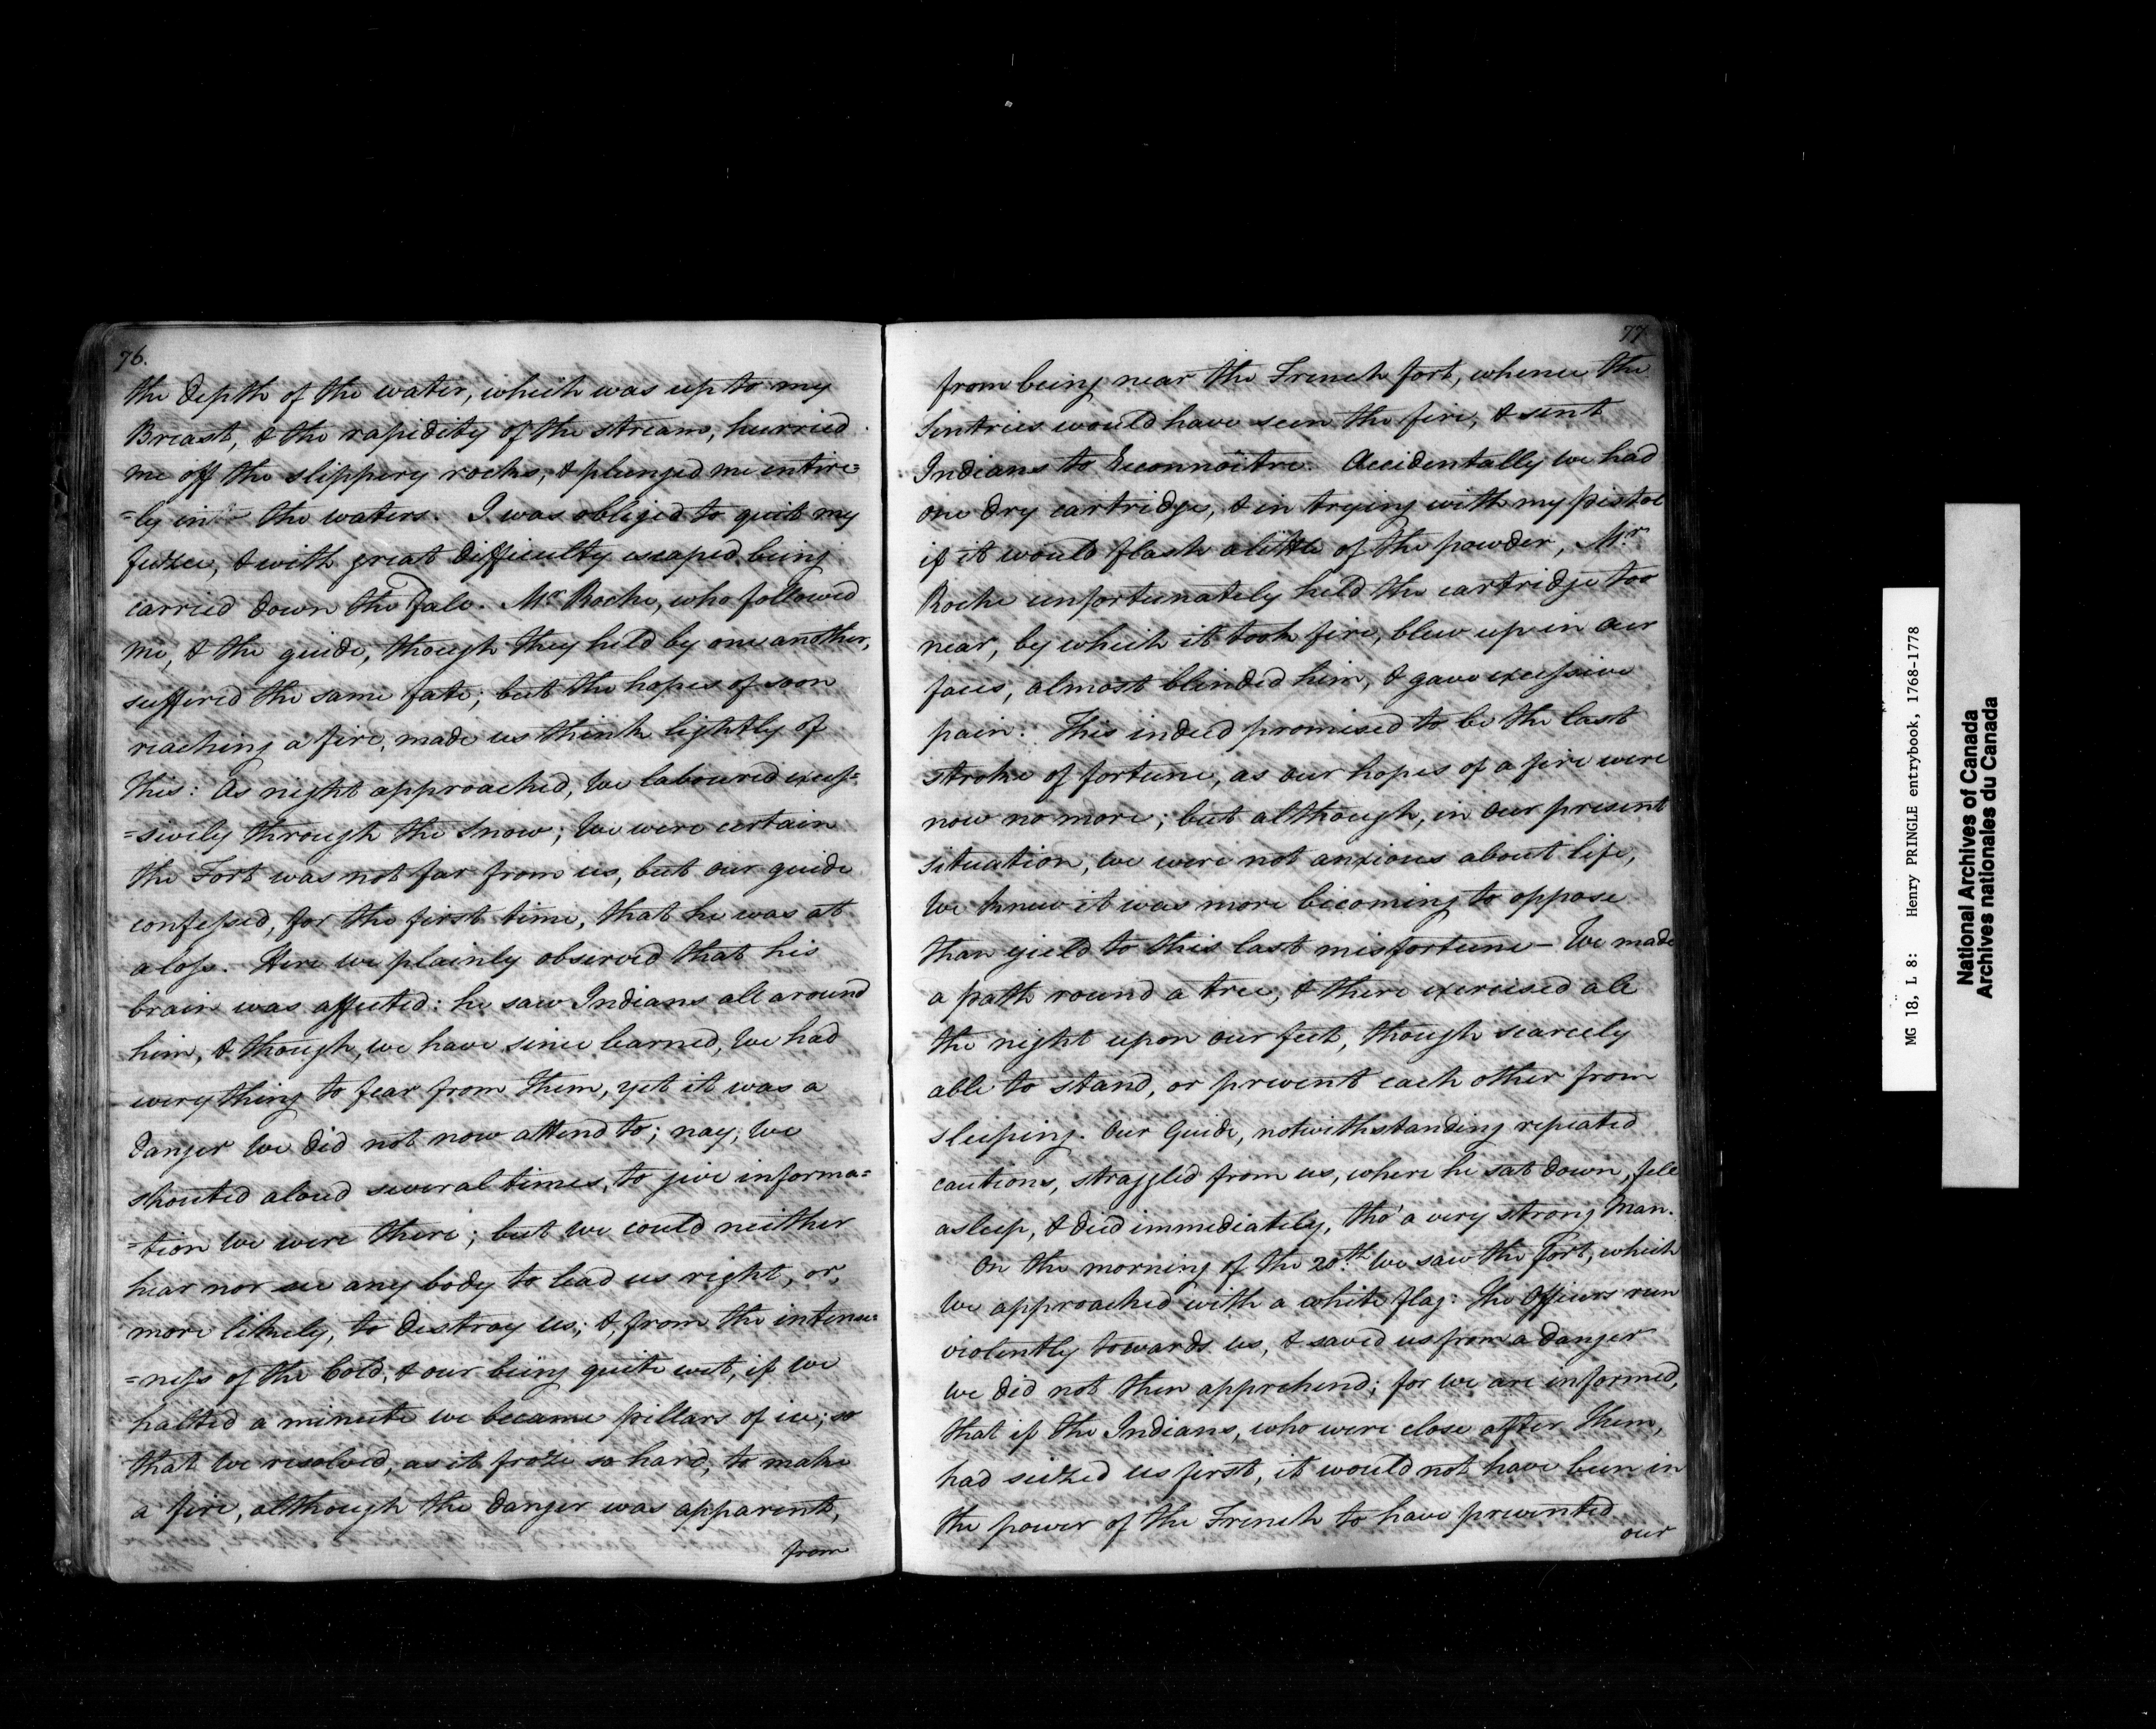 76.
the depth of the water, which was up to my
Breast, & the rapidity of the stream, hurried
me off the slippery rocks, & plunged me entire=
=ly into the waters. I was obliged to quit my
fuzee, & with great difficulty escaped being
carried down the Fall. Mr. Roche, who followed
me, & the guide, though they held by one another,
suffered the same fate; but the hopes of soon
reaching a fire, made us think lightly of
this: As night approached, We laboured exces=
=sively through the Snow; We were certain
the Fort was not far from us, but our guide
confessed, for the first time, that he was at
a loss. Here we plainly observed that his
brain was affected: he saw Indians all around
him, & though, we have since learned, We had
every thing to fear from them, yet it was a
danger We did not now attend to; nay, We
shouted aloud several times, to give informa=
=tion We were there; but We could neither
hear nor see any body to lead us right, or,
more likely, to destroy us; &, from the intense=
=ness of the Cold, & our being quite wet, if We
halted a minute we became pillars of ice; so
that We resolved, as it froze so hard, to make
a fire, although the danger was apparent,
from
77
from being near the French fort, whence the
Sentries would have seen the fire, & sent
Indians to Reconnoitre. Accidentally we had
one dry cartridge, & in trying with my pistol
if it would flash a little of the powder, Mr.
Roche unfortunately held the cartridge too
near, by which it took fire, blew up in our
faces, almost blinded him, & gave excessive
pain. This indeed promised to be the last
stroke of fortune, as our hopes of a fire were
now no more; but although, in our present
situation, we were not anxious about life,
We knew it was more becoming to oppose
than yield to this last misfortune — We made
a path round a tree, & there exercised all
the night upon our feet, though scarcely
able to stand, or prevent each other from
sleeping. Our Guide, notwithstanding repeated
cautions, straggled from us, where he sat down, fell
asleep, & died immediately, tho' a very strong Man.
On the morning of the 20th. We saw the fort, which
We approached with a white flag: The Officers run
violently towards us, & saved us from a danger
we did not then apprehend; for we are informed,
that if the Indians, who were close after them,
had seized us first, it would not have been in
the power of the French to have prevented
our
MG 18, L 8: Henry PRINGLE entrybook, 1768-1778
National Archives of Canada
Archives nationales du Canada